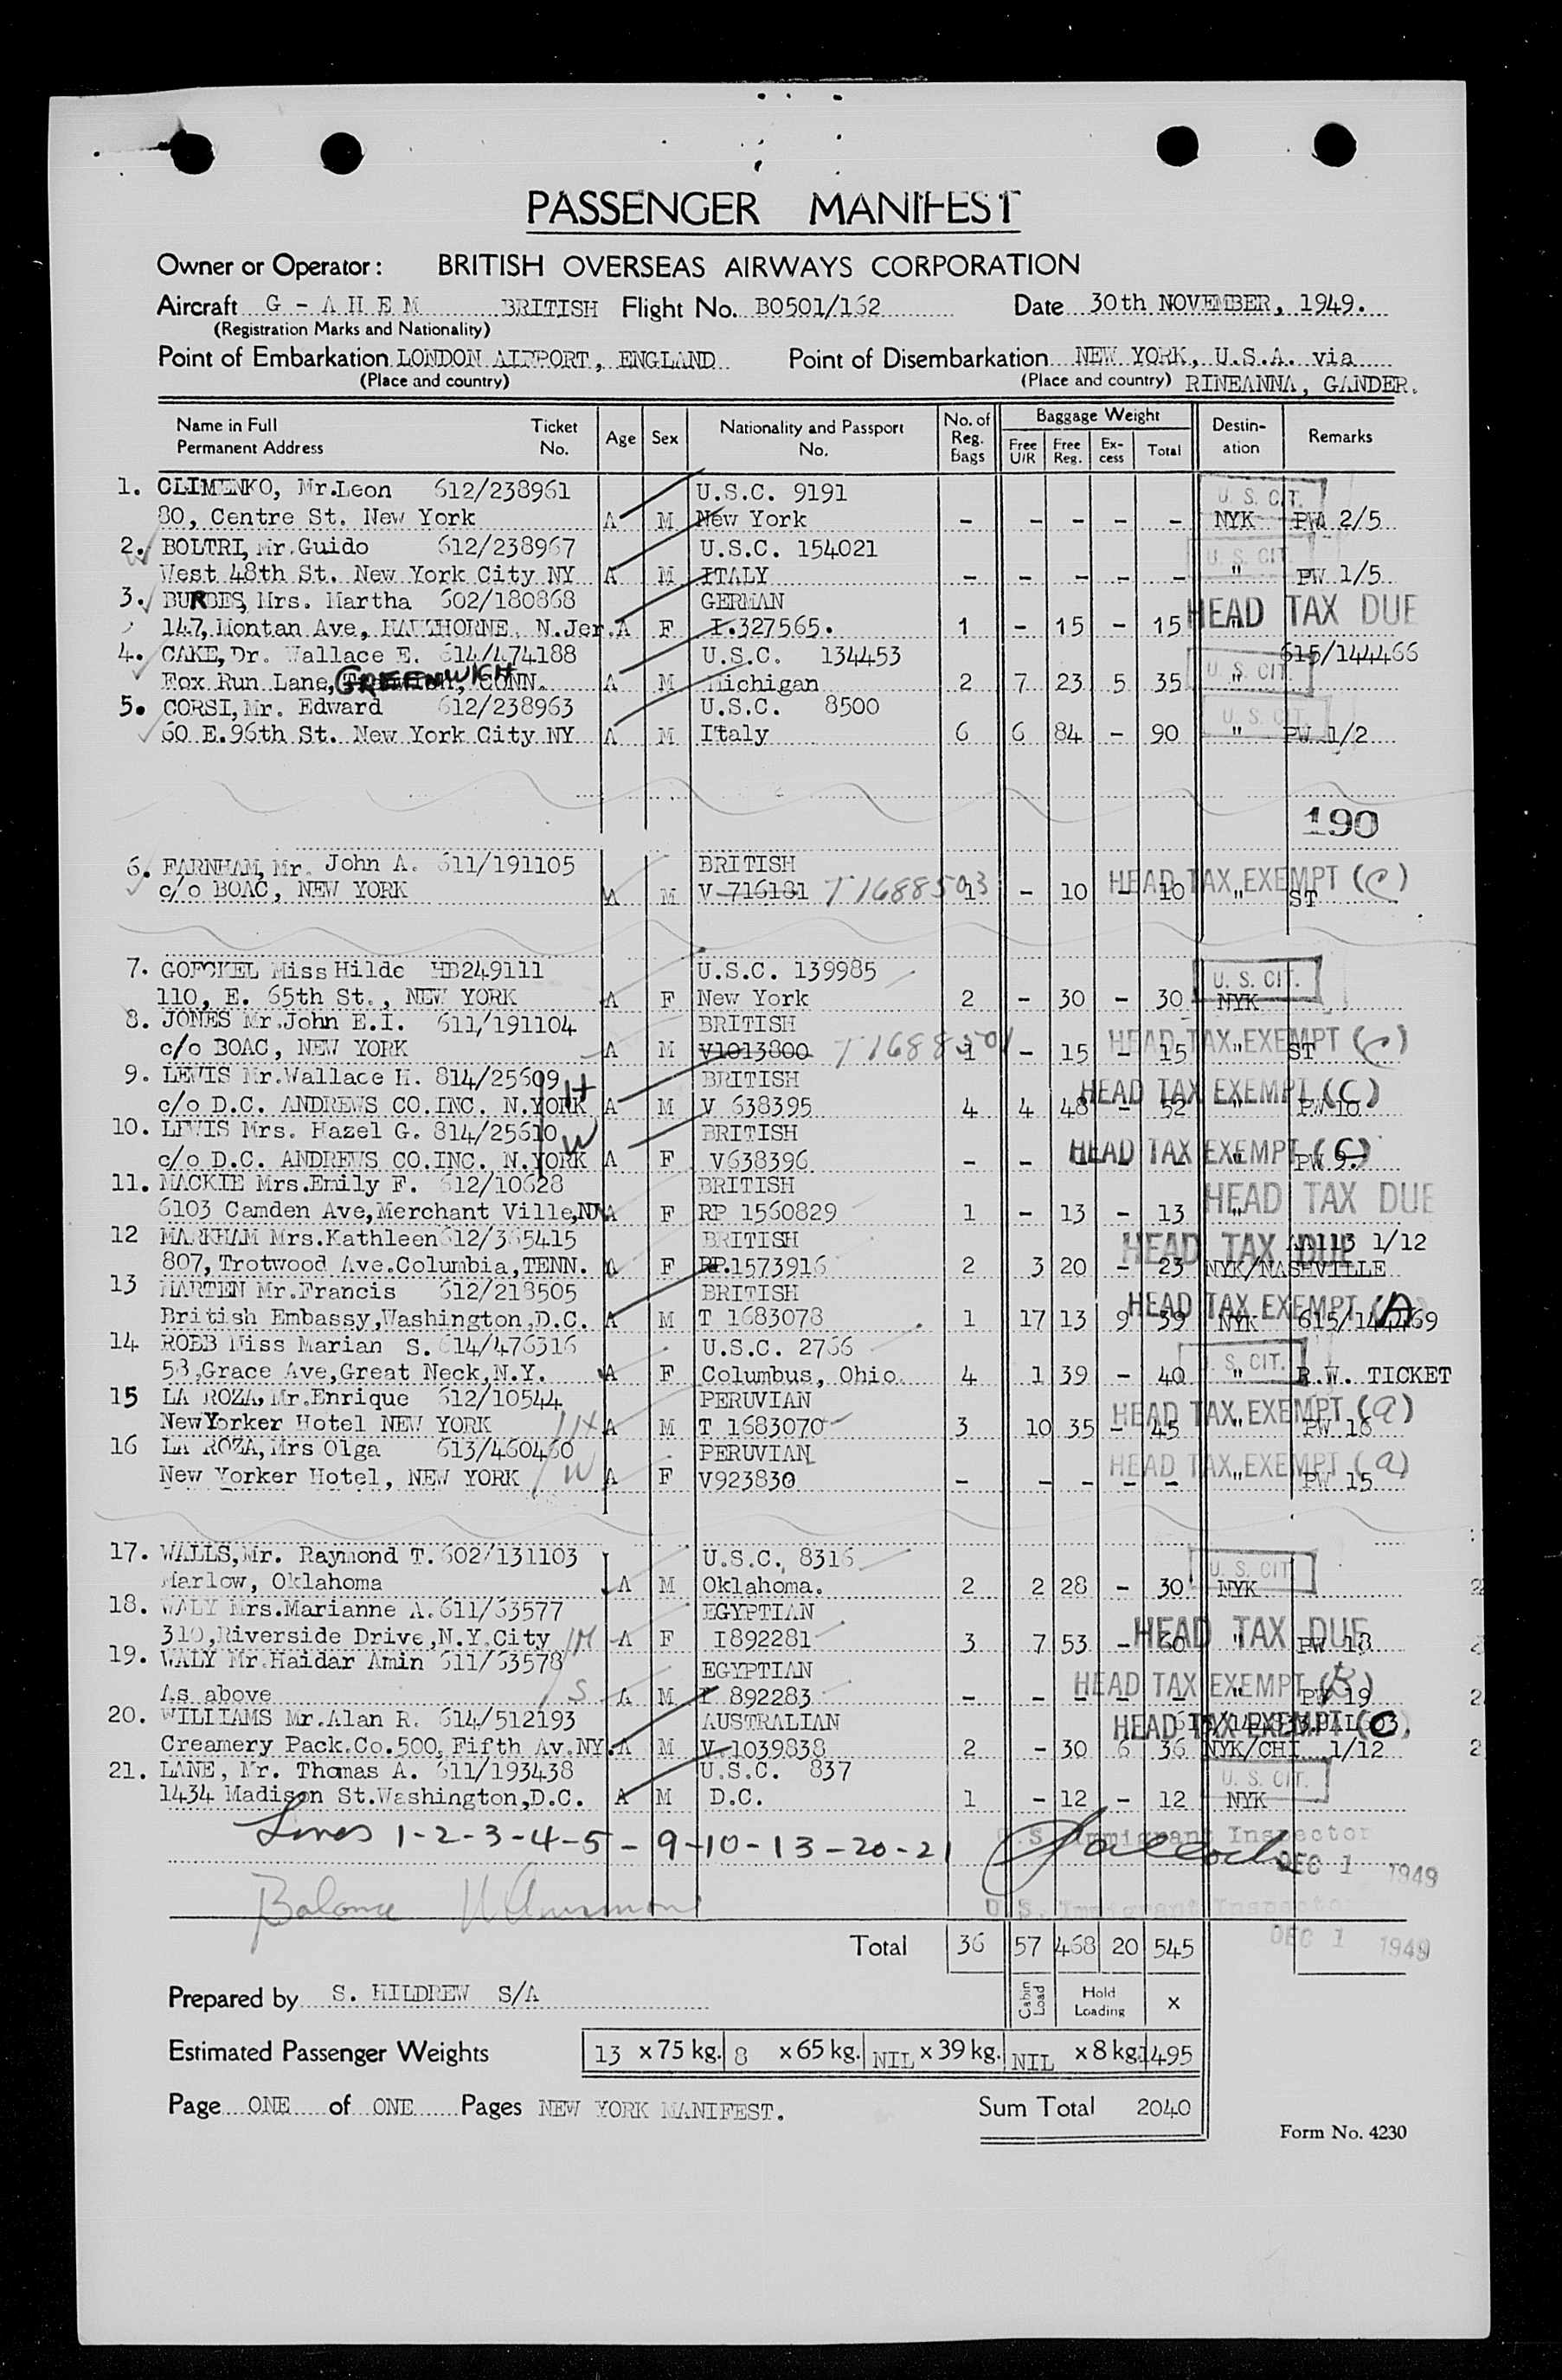 PASSENGER MANIFEST
Owner or Operator: BRITISH OVERSEAS AIRWAYS CORPORATION
Aircraft G - A H E M BRITISH Flight No. BO501/162 Date 30th NOVEMBER, 1949.
(Registration Marks and Nationality)
Point of Embarkation LONDON AIRPORT, ENGLAND Point of Disembarkation NEW YORK, U.S.A. via
(Place and country) (Place and country) RINEANNA, GANDER.
Name in Full Ticket Age Sex Nationality and Passport No. of Reg. Bags Baggage Weight Destin-ation Remarks
Permanent Address No. No. Free U/R Free Reg. Ex-cess Total
1. CLIMENKO, Mr.Leon 612/238961 U.S.C. 9191 U. S. CIT.
80, Centre St. New York A M New York - - - - - NYK PW 2/5
2. BOLTRI, Mr.Guido 612/238967 U.S.C. 154021 U. S. CIT.
West 48th St. New York City NY A M ITALY - - - - - " PW 1/5
3. BURDES, Mrs. Martha 602/180868 GERMAN HEAD TAX DUE
147, Montan Ave, HAWTHORNE, N.Jer. A F I.327565. 1 - 15 - 15 "
4. CAKE, Dr. Wallace E. 614/474188 U.S.C. 134453 615/144466
Fox Run Lane, GREENWICH, CONN. A M Michigan 2 7 23 5 35 " U. S. CIT.
5. CORSI, Mr. Edward 612/238963 U.S.C. 8500 U. S. CIT.
60 E.96th St. New York City NY A M Italy 6 6 84 - 90 " PW 1/2
190
6. FARNHAM, Mr. John A. 611/191105 BRITISH HEAD TAX EXEMPT (C)
c/o BOAC, NEW YORK A M V 716181 T1688503 1 - 10 - 10 " ST
7. GOECKEL Miss Hilde HB249111 U.S.C. 139985 U. S. CIT.
110, E. 65th St., NEW YORK A F New York 2 - 30 - 30 NYK
8. JONES Mr.John E.I. 611/191104 BRITISH HEAD TAX EXEMPT (C)
c/o BOAC, NEW YORK A M V1013800 T1688501 1 - 15 - 15 " ST
9. LEWIS Mr.Wallace H. 814/25609 H BRITISH HEAD TAX EXEMPT (C)
c/o D.C. ANDREWS CO.INC. N.YORK A M V 638395 4 4 48 - 52 " PW 10
10. LEWIS Mrs. Hazel G. 814/25610 W BRITISH HEAD TAX EXEMPT (C)
c/o D.C. ANDREWS CO.INC. N.YORK A F V638396 - - - - - " PW 9.
11. MACKIE Mrs.Emily F. 612/10628 BRITISH HEAD TAX DUE
6103 Camden Ave,Merchant Ville,NJ A F RP 1560829 1 - 13 - 13 "
12 MARKHAM Mrs.Kathleen 612/365415 BRITISH HEAD TAX DUE AA113 1/12
807, Trotwood Ave.Columbia,TENN. A F RP.1573916 2 3 20 - 23 NYK/NASHVILLE
13 MARTEN Mr.Francis 612/218505 BRITISH HEAD TAX EXEMPT (A)
British Embassy,Washington,D.C. A M T 1683078 1 17 13 9 39 NYK 615/144469
14 ROBB Miss Marian S. 614/476316 U.S.C. 2766 U. S. CIT.
58,Grace Ave,Great Neck,N.Y. A F Columbus, Ohio. 4 1 39 - 40 " R.W. TICKET
15 LA ROZA, Mr.Enrique 612/10544 PERUVIAN HEAD TAX EXEMPT (a)
NewYorker Hotel NEW YORK H A M T 1683070 3 10 35 - 45 " PW 16
16 LA ROZA, Mrs Olga 613/460460 PERUVIAN HEAD TAX EXEMPT (a)
New Yorker Hotel, NEW YORK W A F V923830 - - - - - " PW 15
17. WALLS, Mr. Raymond T. 602/131103 U.S.C. 8316 U. S. CIT.
Marlow, Oklahoma A M Oklahoma. 2 2 28 - 30 NYK
18. WALY Mrs.Marianne A. 611/63577 EGYPTIAN HEAD TAX DUE
310,Riverside Drive,N.Y.City M A F I892281 3 7 53 - 60 " PW 18
19. WALY Mr.Haidar Amin 611/63578 EGYPTIAN HEAD TAX EXEMPT (B)
As above S A M I 892283 - - - - - " PW 19
20. WILLIAMS Mr.Alan R. 614/512193 AUSTRALIAN HEAD TAX EXEMPT (C)
Creamery Pack.Co.500, Fifth Av.NY. A M V.1039838 2 - 30 6 36 NYK/CHI 1/12
21. LANE, Mr. Thomas A. 611/193438 U.S.C. 837 U. S. CIT.
1434 Madison St.Washington,D.C. A M D.C. 1 - 12 - 12 NYK
Lines 1-2-3-4-5-9-10-13-20-21 U.S. Immigrant Inspector
DEC 1 1949
Balance U.S. Immigrant Inspector
Total 36 57 468 20 545 DEC 1 1949
Prepared by S. HILDREW S/A Cabin Load Hold Loading x
Estimated Passenger Weights 13 x 75 kg. 8 x 65 kg. NIL x 39 kg. NIL x 8 kg. 1495
Page ONE of ONE Pages NEW YORK MANIFEST. Sum Total 2040
Form No. 4230